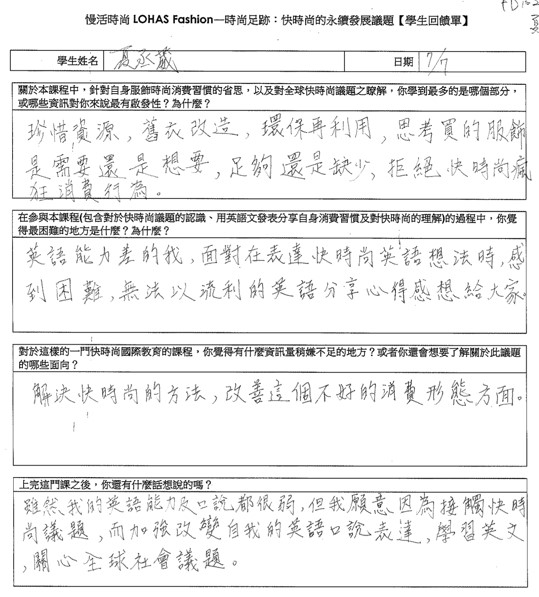 慢活時尚 LOHAS Fashion—時尚足跡：快時尚的永續發展議題【學生回饋單】
學生姓名 夏丞葳 日期 7/7
關於本課程中，針對自身服飾時尚消費習慣的省思，以及對全球快時尚議題之瞭解，你學到最多的是哪個部分，
或哪些資訊對你來說最有啟發性？為什麼？
珍惜資源，舊衣改造，環保再利用，思考買的服飾
是需要還是想要，足夠還是缺少，拒絕快時尚瘋
狂消費行為。
在參與本課程(包含對於快時尚議題的認識、用英語文發表分享自身消費習慣及對快時尚的理解)的過程中，你覺
得最困難的地方是什麼？為什麼？
英語能力差的我，面對在表達快時尚英語想法時，感
到困難，無法以流利的英語分享心得感想給大家
對於這樣的一門快時尚國際教育的課程，你覺得有什麼資訊量稍嫌不足的地方？或者你還會想要了解關於此議題
的哪些面向？
解決快時尚的方法，改善這個不好的消費形態方面。
上完這門課之後，你還有什麼話想說的嗎？
雖然我的英語能力及口說都很弱，但我願意因為接觸快時
尚議題，而加強改變自我的英語口說表達，學習英文
，關心全球社會議題。